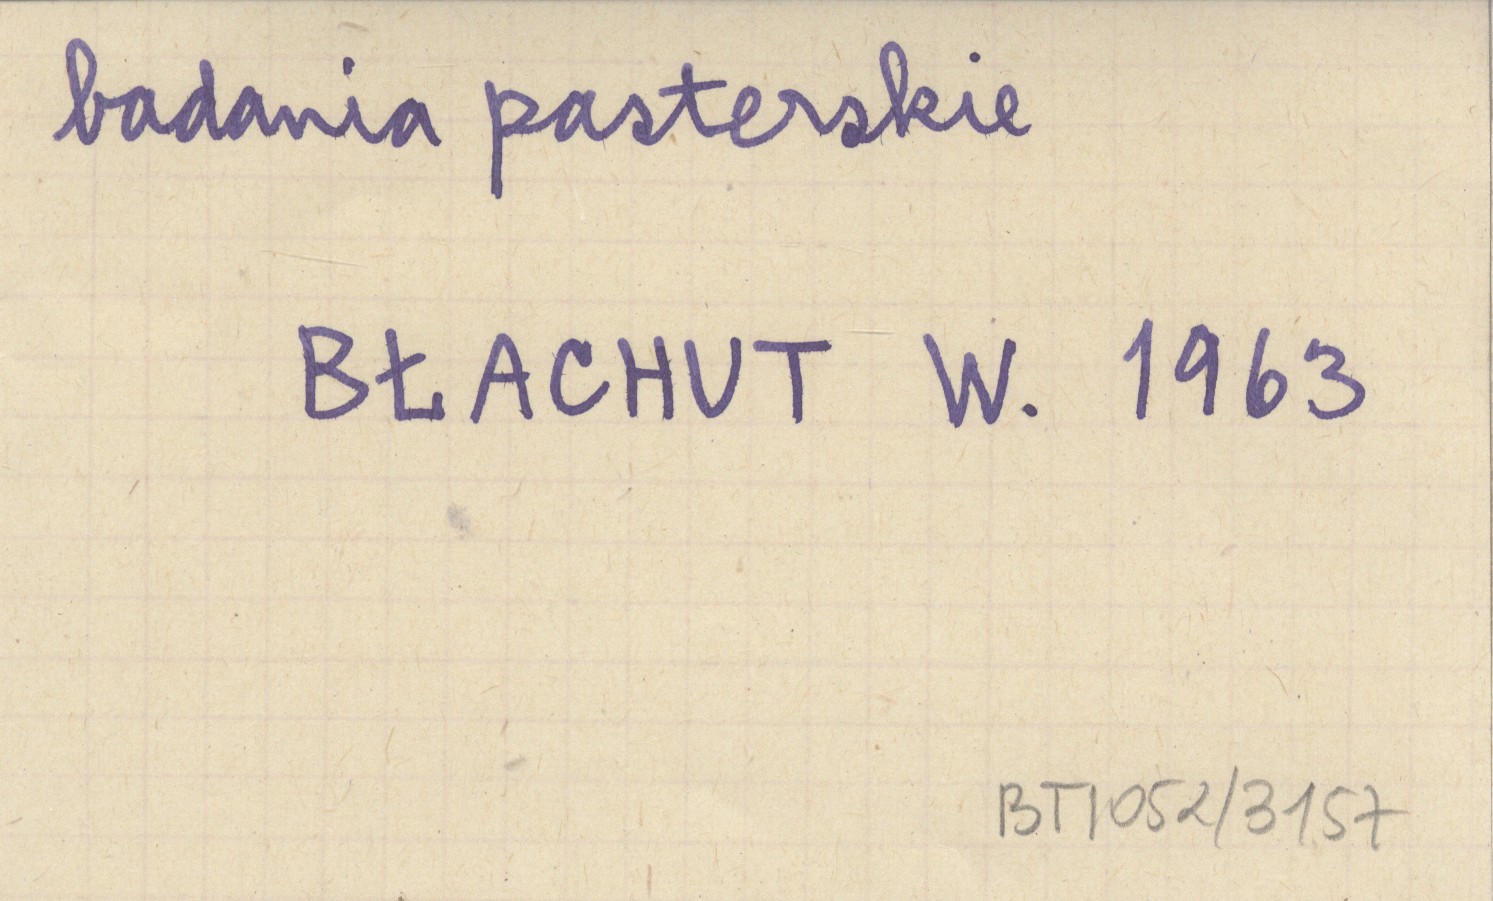 badania pasterskie
BŁACHUT W. 1963
BT1052/3157